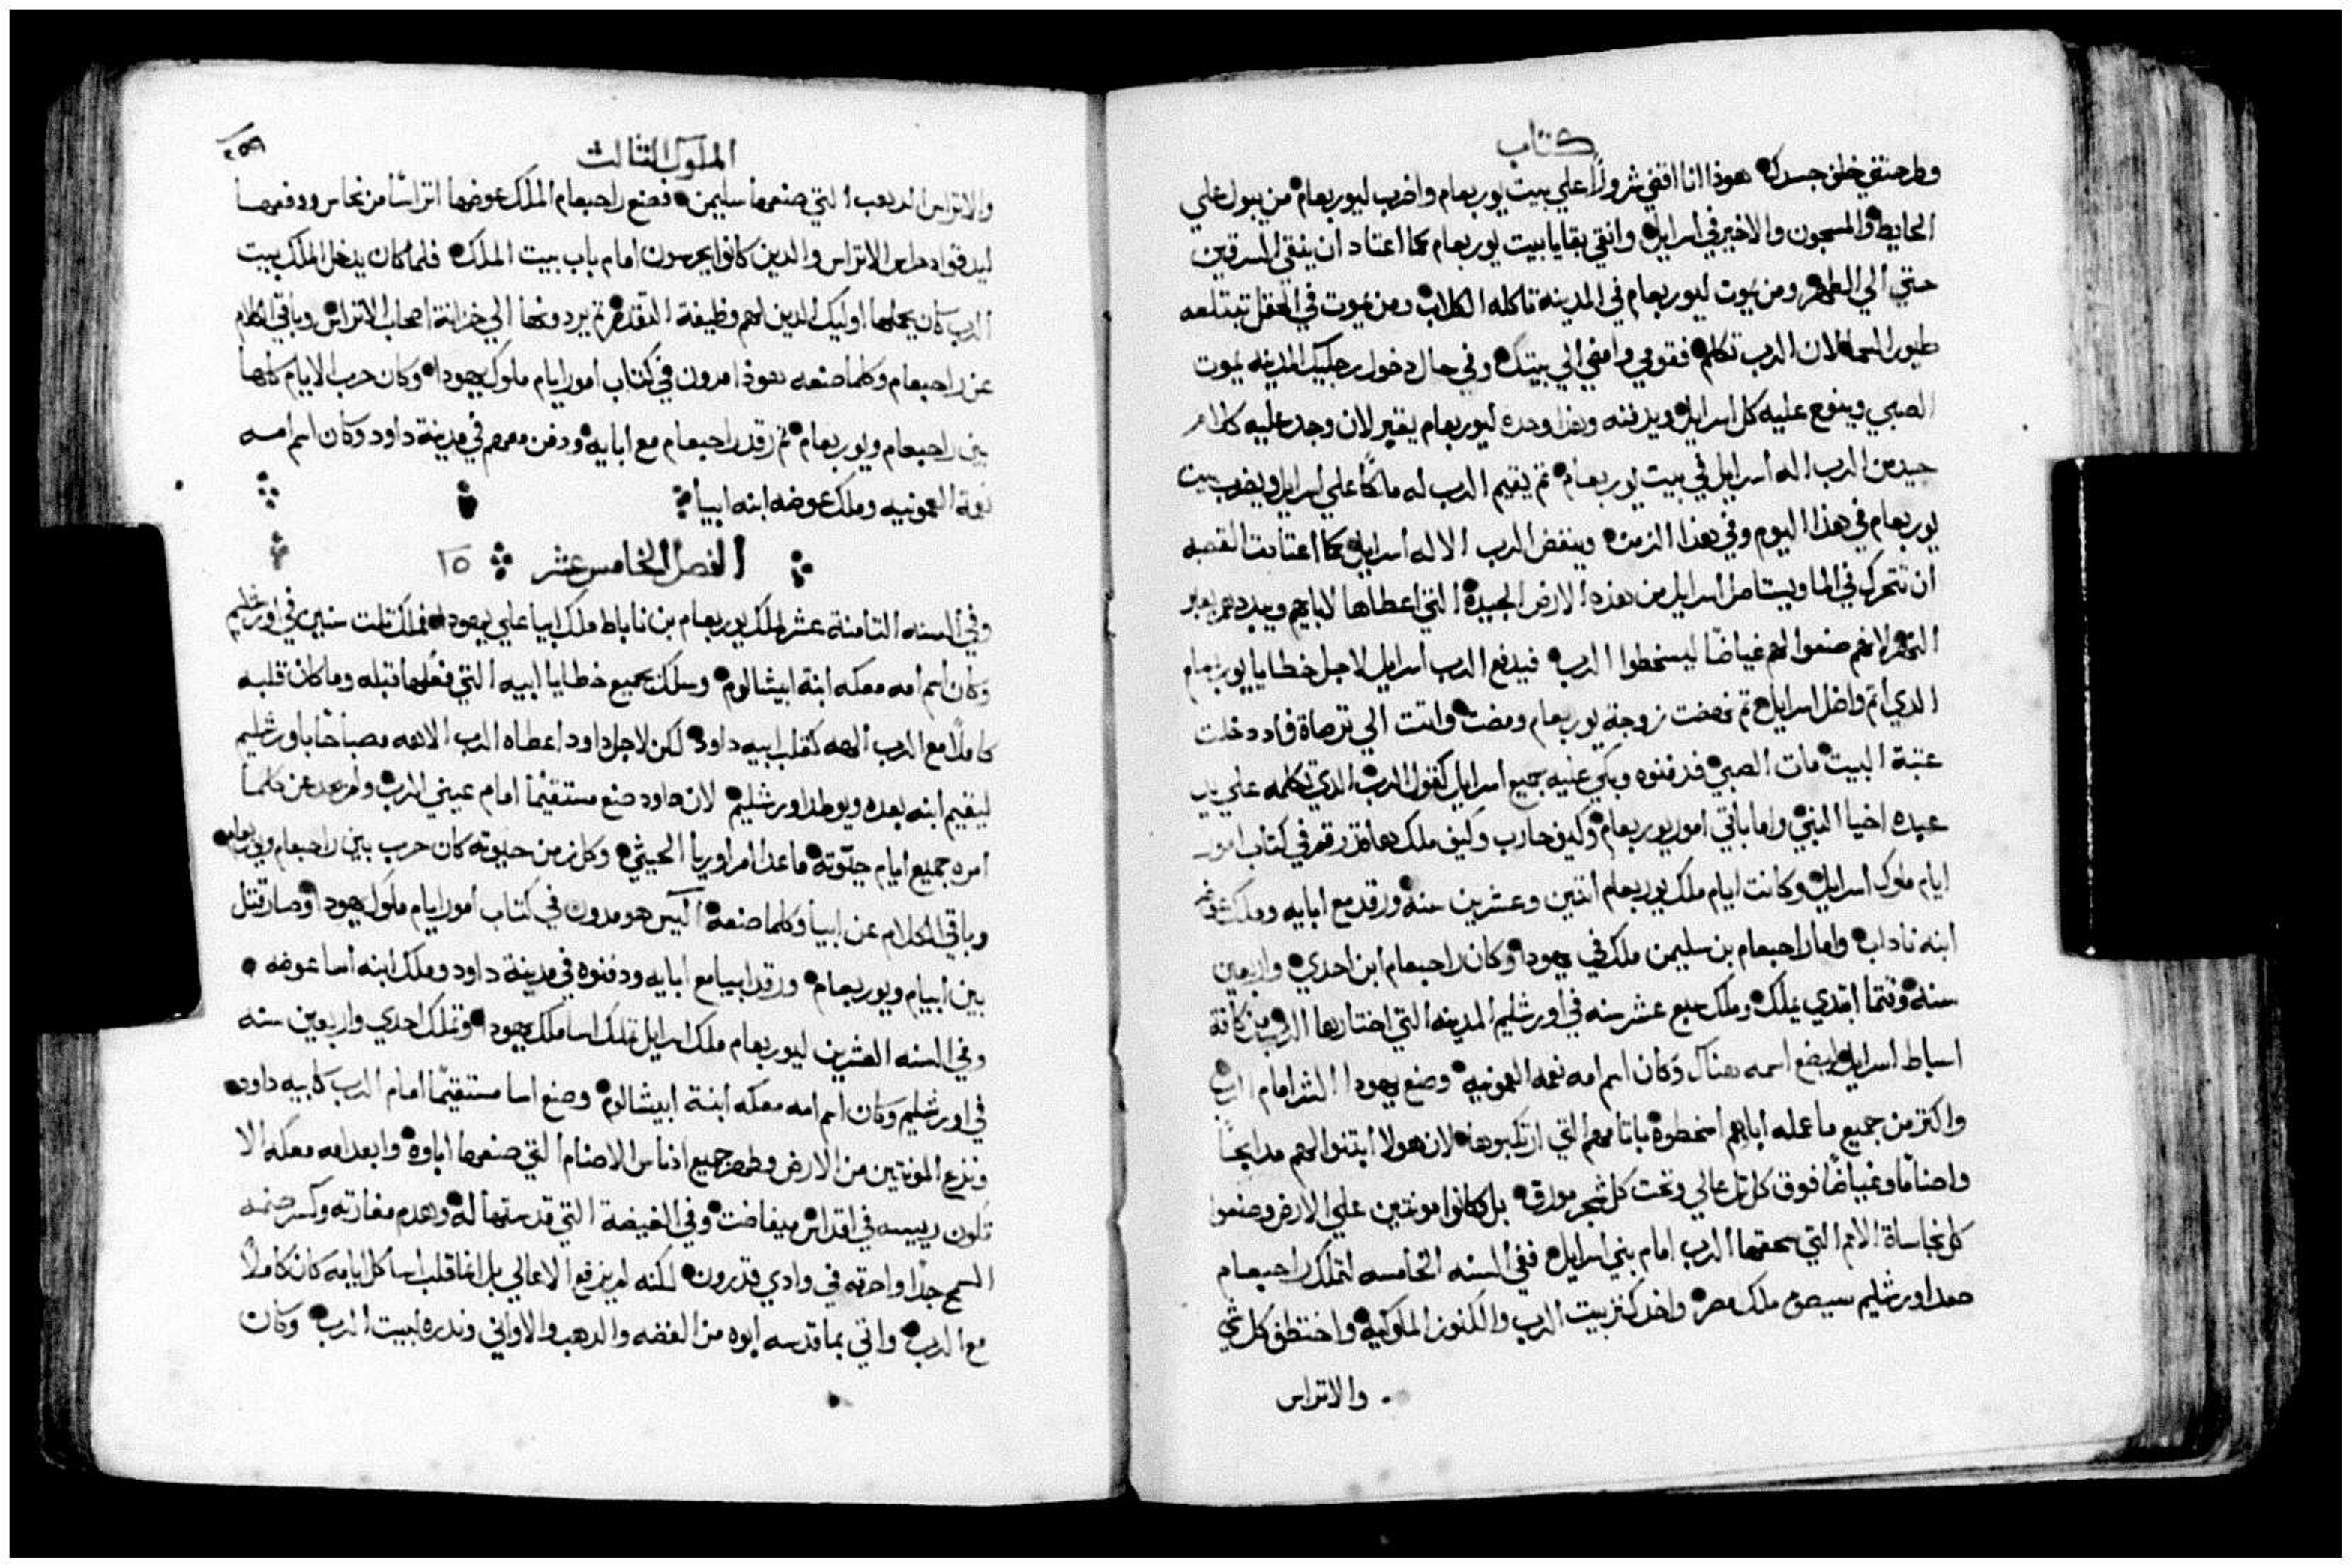 كتاب
وطرحتني خلف جسدك هوذا انا اقفي شرورًا علي بيت يوربعام واضرب ليوربعام من يبول علي
الحايط والمسجون والاخير في اسرايل وانقي بقايا بيت يوربعام كما اعتاد ان ينقي السرقين
حتي الي الطهر ومن يموت ليوربعام في المدينة تاكله الكلاب ومن يموت في الحقل تبتلعه
طيور السما لان الرب تكلم فقومي وامضي الي بيتك وفي حال دخول رجليك المدينه يموت
الصبي وينوح عليه كل اسرايل ويدفنه وهذا وحده ليوربعام يقبر لان وجد عليه كلام
جيد من الرب اله اسرايل في بيت يوربعام ثم يقيم الرب له ملكًا علي اسرايل ويضرب بيت
يوربعام في هذا اليوم وفي هذا الزمن وينفض الرب الاله اسرايل كما اعتادت القصبه
ان تتحرك في الما ويستاصل اسرايل من هذه الارض الجيدة التي اعطاها لابايهم ويبددهم بعبر
النهر لانهم صنعوا لهم غياضًا ليسخطوا الرب فيدفع الرب اسرايل لاجل خطايا يوربعام
الدي اثم واضل اسرايل ثم نهضت زوجة يوربعام ومضت واتت الي ترصاة فاد دخلت
عتبة البيت مات الصبي فدفنوه وبكي عليه جميع اسرايل كقول الرب الدي تكلمه علي يد
عبده اخيا النبي واما باقي امور يوربعام وكيف حارب وكيف ملك هاقد رقم في كتاب امور
ايام ملوك اسرايل وكانت ايام ملك يوربعام اثنين وعشرين سنه ورقد مع ابايه وملك عوضه
ابنه ناداب واما راحبعام بن سليمن ملك في يهودا وكان راحبعام ابن احدي واربعين
سنة وقتما ابتدي يملك وملك سبع عشر سنه في اورشليم المدينه التي اختارها الرب من كافة
اسباط اسرايل ليضع اسمه هناك وكان اسم امه نعمه العمونيه وصنع يهودا الشر امام الرب
واكتر من جميع ما عمله اباهم اسخطوه باتامهم التي ارتكبوها لان هولا ابتنوا لهم مدابحًا
واصنامًا وغياضًا فوق كل تل عالي وتحت كل شجر مورق بل كانوا مونتين علي الارض وصنعوا
كل نجاساة الامم التي سحقها الرب امام بني اسرايل ففي السنه الخامسه لتملك راحبعام
صعد اورشليم سيصق ملك مصر واخد كنز بيت الرب والكنوز الملوكيه واختطف كل شي
والاتراس
الملوك التالت
والاتراس الدهب التي صنعها سليمن فصنع راحبعام الملك عوضها اتراسًا من نحاس ودفعها
ليد قواد حاملي الاتراس والدين كانوا يحرسون امام باب بيت الملك فلما كان يدخل الملك بيت
الرب كان يحملها اوليك الدين لهم وظيفة التقدم ثم يردونها الي خزانة اصحاب الاتراس وباقي الكلام
عن راحبعام وكلما صنعه هوذا مدون في كتاب امور ايام ملوك يهودا وكان حرب الايام كلها
بين راحبعام ويوربعام ثم رقد راحبعام مع ابايه ودفن معهم في مدينة داود وكان اسم امه
نعمة العمونيه وملك عوضه ابنه ابيا
الفصل الخامس عشر ١٥
وفي السنه التامنة عشر لملك يوربعام بن ناباط ملك ابيا علي يهودا فملك تلت سنين في اورشليم
وكان اسم امه معكه ابنة ابيشالوم وسلك بجميع خطايا ابيه التي فعلها قبله وما كان قلبه
كاملًا مع الرب الهه كقلب ابيه داود لكن لاجل داود اعطاه الرب الاهه مصباحًا باورشليم
ليقيم ابنه بعده ويوطد اورشليم لان داود صنع مستقيمًا امام عيني الرب ولم يحد عن كلما
امره جميع ايام حيوته ماعدا امر اوريا الحيثي وكل زمن حيوته كان حرب بين راحبعام ويوربعام
وباقي الكلام عن ابيا وكلما صنعه اليس هو مدون في كتاب امور ايام ملوك يهودا وصار قتل
بين ابيام ويوربعام ورقد ابيا مع ابايه ودفنوه في مدينة داود وملك ابنه اسا عوضه
وفي السنه العشرين ليوربعام ملك اسرايل تملك اسا ملك يهودا وتملك احدي واربعين سنه
في اورشليم وكان اسم امه معكه ابنة ابيشالوم وصنع اسا مستقيمًا امام الرب كابيه داود
ونزع المونتين من الارض وطهر جميع ادناس الاصنام التي صنعها اباوه وابعد امه معكه الا
تكون رييسه في اقداس ميفاضت وفي الغيضة التي قدستها له وهدم مغارته وكسر صنمه
السمج جدًا واحرقه في وادي قدرون لكنه لم يرفع الاعالي بل انما قلب اسا كل ايامه كان كاملًا
مع الرب واتي بما قدسه ابوه من الفضه والدهب والاواني وندره لبيت الرب وكان